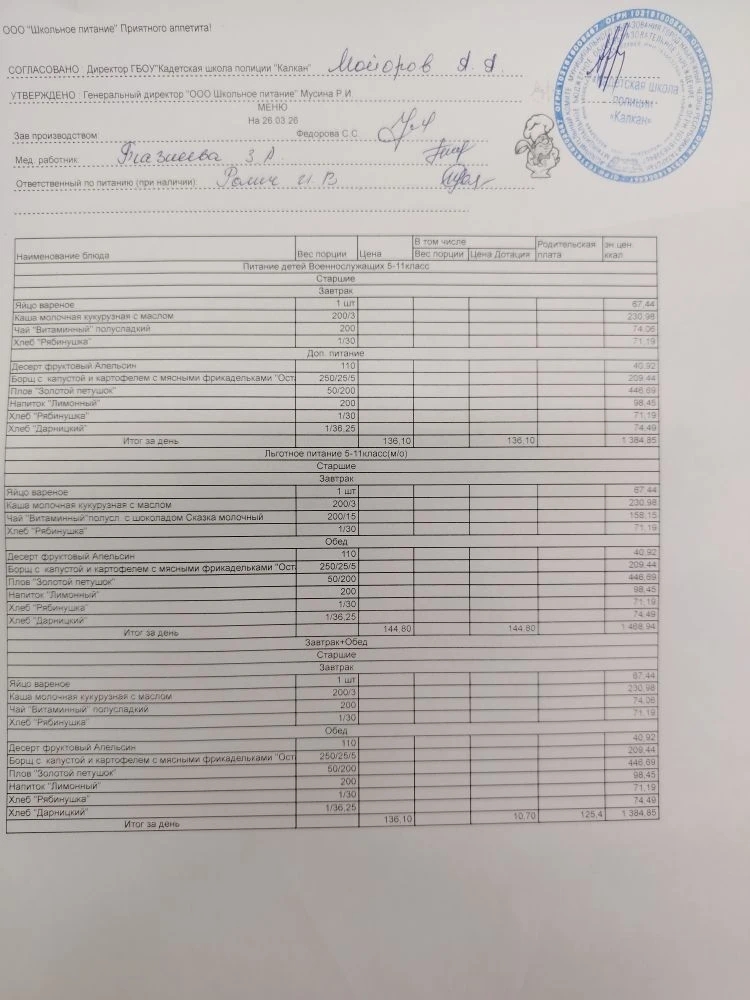 ООО "Школьное питание" Приятного аппетита!
СОГЛАСОВАНО : Директор ГБОУ"Кадетская школа полиции "Калкан" Майоров А.А.
УТВЕРЖДЕНО : Генеральный директор "ООО Школьное питание" Мусина Р.И.
МЕНЮ
На 26.03.26
Зав производством: Федорова С.С.
Мед. работник: З.А
Ответственный по питанию (при наличии): И.В
Кадетская школа
полиции
«Калкан»
Наименование блюда Вес порции Цена В том числе Родительская плата эн цен. ккал
Вес порции Цена Дотация
Питание детей Военнослужащих 5-11класс
Старшие
Завтрак
Яйцо вареное 1 шт 67,44
Каша молочная кукурузная с маслом 200/3 230,98
Чай "Витаминный" полусладкий 200 74,06
Хлеб "Рябинушка" 1/30 71,19
Доп. питание
Десерт фруктовый Апельсин 110 40,92
Борщ с капустой и картофелем с мясными фрикадельками "Ост 250/25/5 209,44
Плов "Золотой петушок" 50/200 446,69
Напиток "Лимонный" 200 98,45
Хлеб "Рябинушка" 1/30 71,19
Хлеб "Дарницкий" 1/36,25 74,49
Итог за день 136,10 136,10 1 384,85
Льготное питание 5-11класс(м/о)
Старшие
Завтрак
Яйцо вареное 1 шт 67,44
Каша молочная кукурузная с маслом 200/3 230,98
Чай "Витаминный"полусл. с шоколадом Сказка молочный 200/15 158,15
Хлеб "Рябинушка" 1/30 71,19
Обед
Десерт фруктовый Апельсин 110 40,92
Борщ с капустой и картофелем с мясными фрикадельками "Ост 250/25/5 209,44
Плов "Золотой петушок" 50/200 446,69
Напиток "Лимонный" 200 98,45
Хлеб "Рябинушка" 1/30 71,19
Хлеб "Дарницкий" 1/36,25 74,49
Итог за день 144,80 144,80 1 468,94
Завтрак+Обед
Старшие
Завтрак
Яйцо вареное 1 шт 67,44
Каша молочная кукурузная с маслом 200/3 230,98
Чай "Витаминный" полусладкий 200 74,06
Хлеб "Рябинушка" 1/30 71,19
Обед
Десерт фруктовый Апельсин 110 40,92
Борщ с капустой и картофелем с мясными фрикадельками "Ост 250/25/5 209,44
Плов "Золотой петушок" 50/200 446,69
Напиток "Лимонный" 200 98,45
Хлеб "Рябинушка" 1/30 71,19
Хлеб "Дарницкий" 1/36,25 74,49
Итог за день 136,10 10,70 125,4 1 384,85